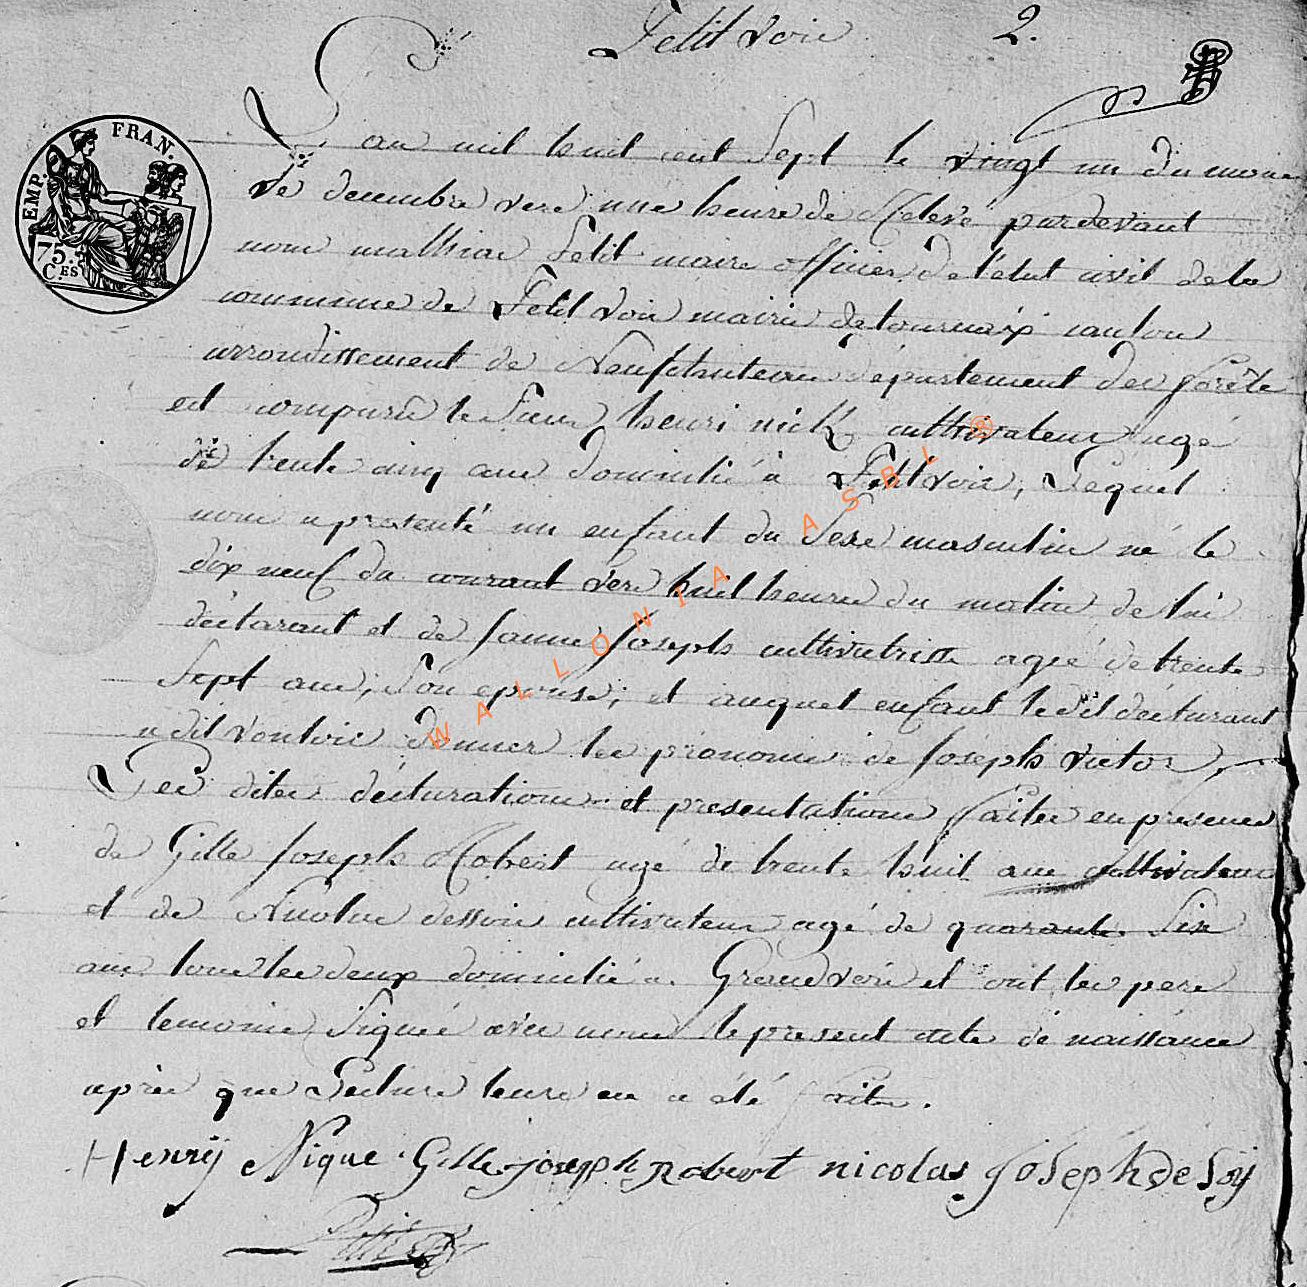 Petit voir 2.
EMP. FRAN.
75. C.ES
L'an mil huit cent Sept le vingt un du mois
de decembre vers une heure de relevé pardevant
nous mathias Petit maire officier de l'état civil de la
commune de Petit voir mairie de tournaix canton
arrondissement de Neufchateau département des forêts
est comparu le Sieur henri nick cultivateur agé
de trente cinq ans domicilié à Petit voir, Lequel
nous a presenté un enfant du Sexe masculin né le
dix neuf du courant vers huit heures du matin de lui
déclarant et de Jeanne Joseph cultivatrisse agée de trente
Sept ans, Son epouse; et auquel enfant le dit déclarant
a dit vouloir donner les prénoms de Joseph victor,
Les dites déclarations et presentations faites en presence
de Gille Joseph Robert agé de trente huit ans cultivateur
et de Nicolas dessoie cultivateur agé de quarante Six
ans tous les deux domicilié a Grandvoir et ont les pere
et temoins Signée avec nous le present acte de naissance
après que Lecture leurs en a été faite.
Henrÿ Nique Gille joseph Robert nicolas joseph de Soÿ
Petit
WALLONIA ASBL ®